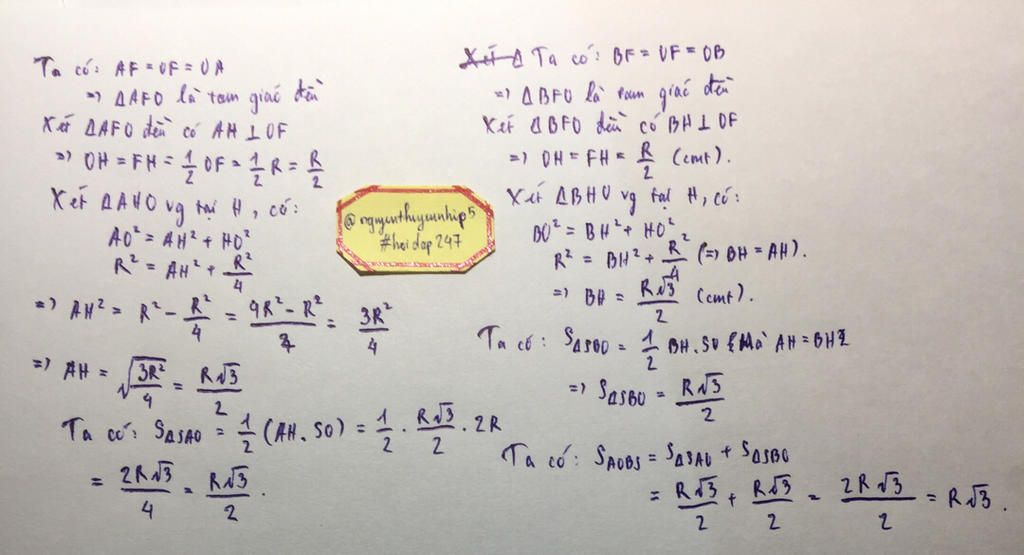 Ta có: AF = OF = OA
=> ΔAFO là tam giác đều
Xét ΔAFO đều có AH ⊥ OF
=> OH = FH = 1/2 OF = 1/2 R = R/2
Xét ΔAHO vg tại H, có:
AO² = AH² + HO²
R² = AH² + R²/4
=> AH² = R² - R²/4 = (4R² - R²)/4 = 3R²/4
=> AH = √(3R²/4) = R√3/2
Ta có: SΔSAO = 1/2 (AH.SO) = 1/2 . R√3/2 . 2R
= 2R√3/4 = R√3/2.
@nguyenthuyuunhip5
#hoidap247
Ta có: BF = OF = OB
=> ΔBFO là tam giác đều
Xét ΔBFO đều có BH ⊥ OF
=> OH = FH = R/2 (cmt).
Xét ΔBHO vg tại H, có:
BO² = BH² + HO²
R² = BH² + R²/4 (=> BH = AH).
=> BH = R√3/2 (cmt).
Ta có: SΔSBO = 1/2 BH.SO { Mà AH = BH }
=> SΔSBO = R√3/2
Ta có: SAOBS = SΔSAO + SΔSBO
= R√3/2 + R√3/2 = 2R√3/2 = R√3.